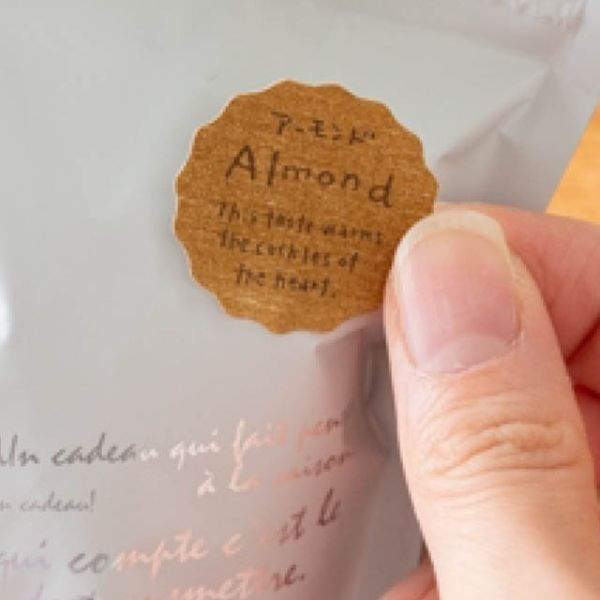 アーモンド
Almond
This taste warms
the cockles of
the heart.
Un cadeau qui fait
à la
n cadeau!
qui compte c'est le